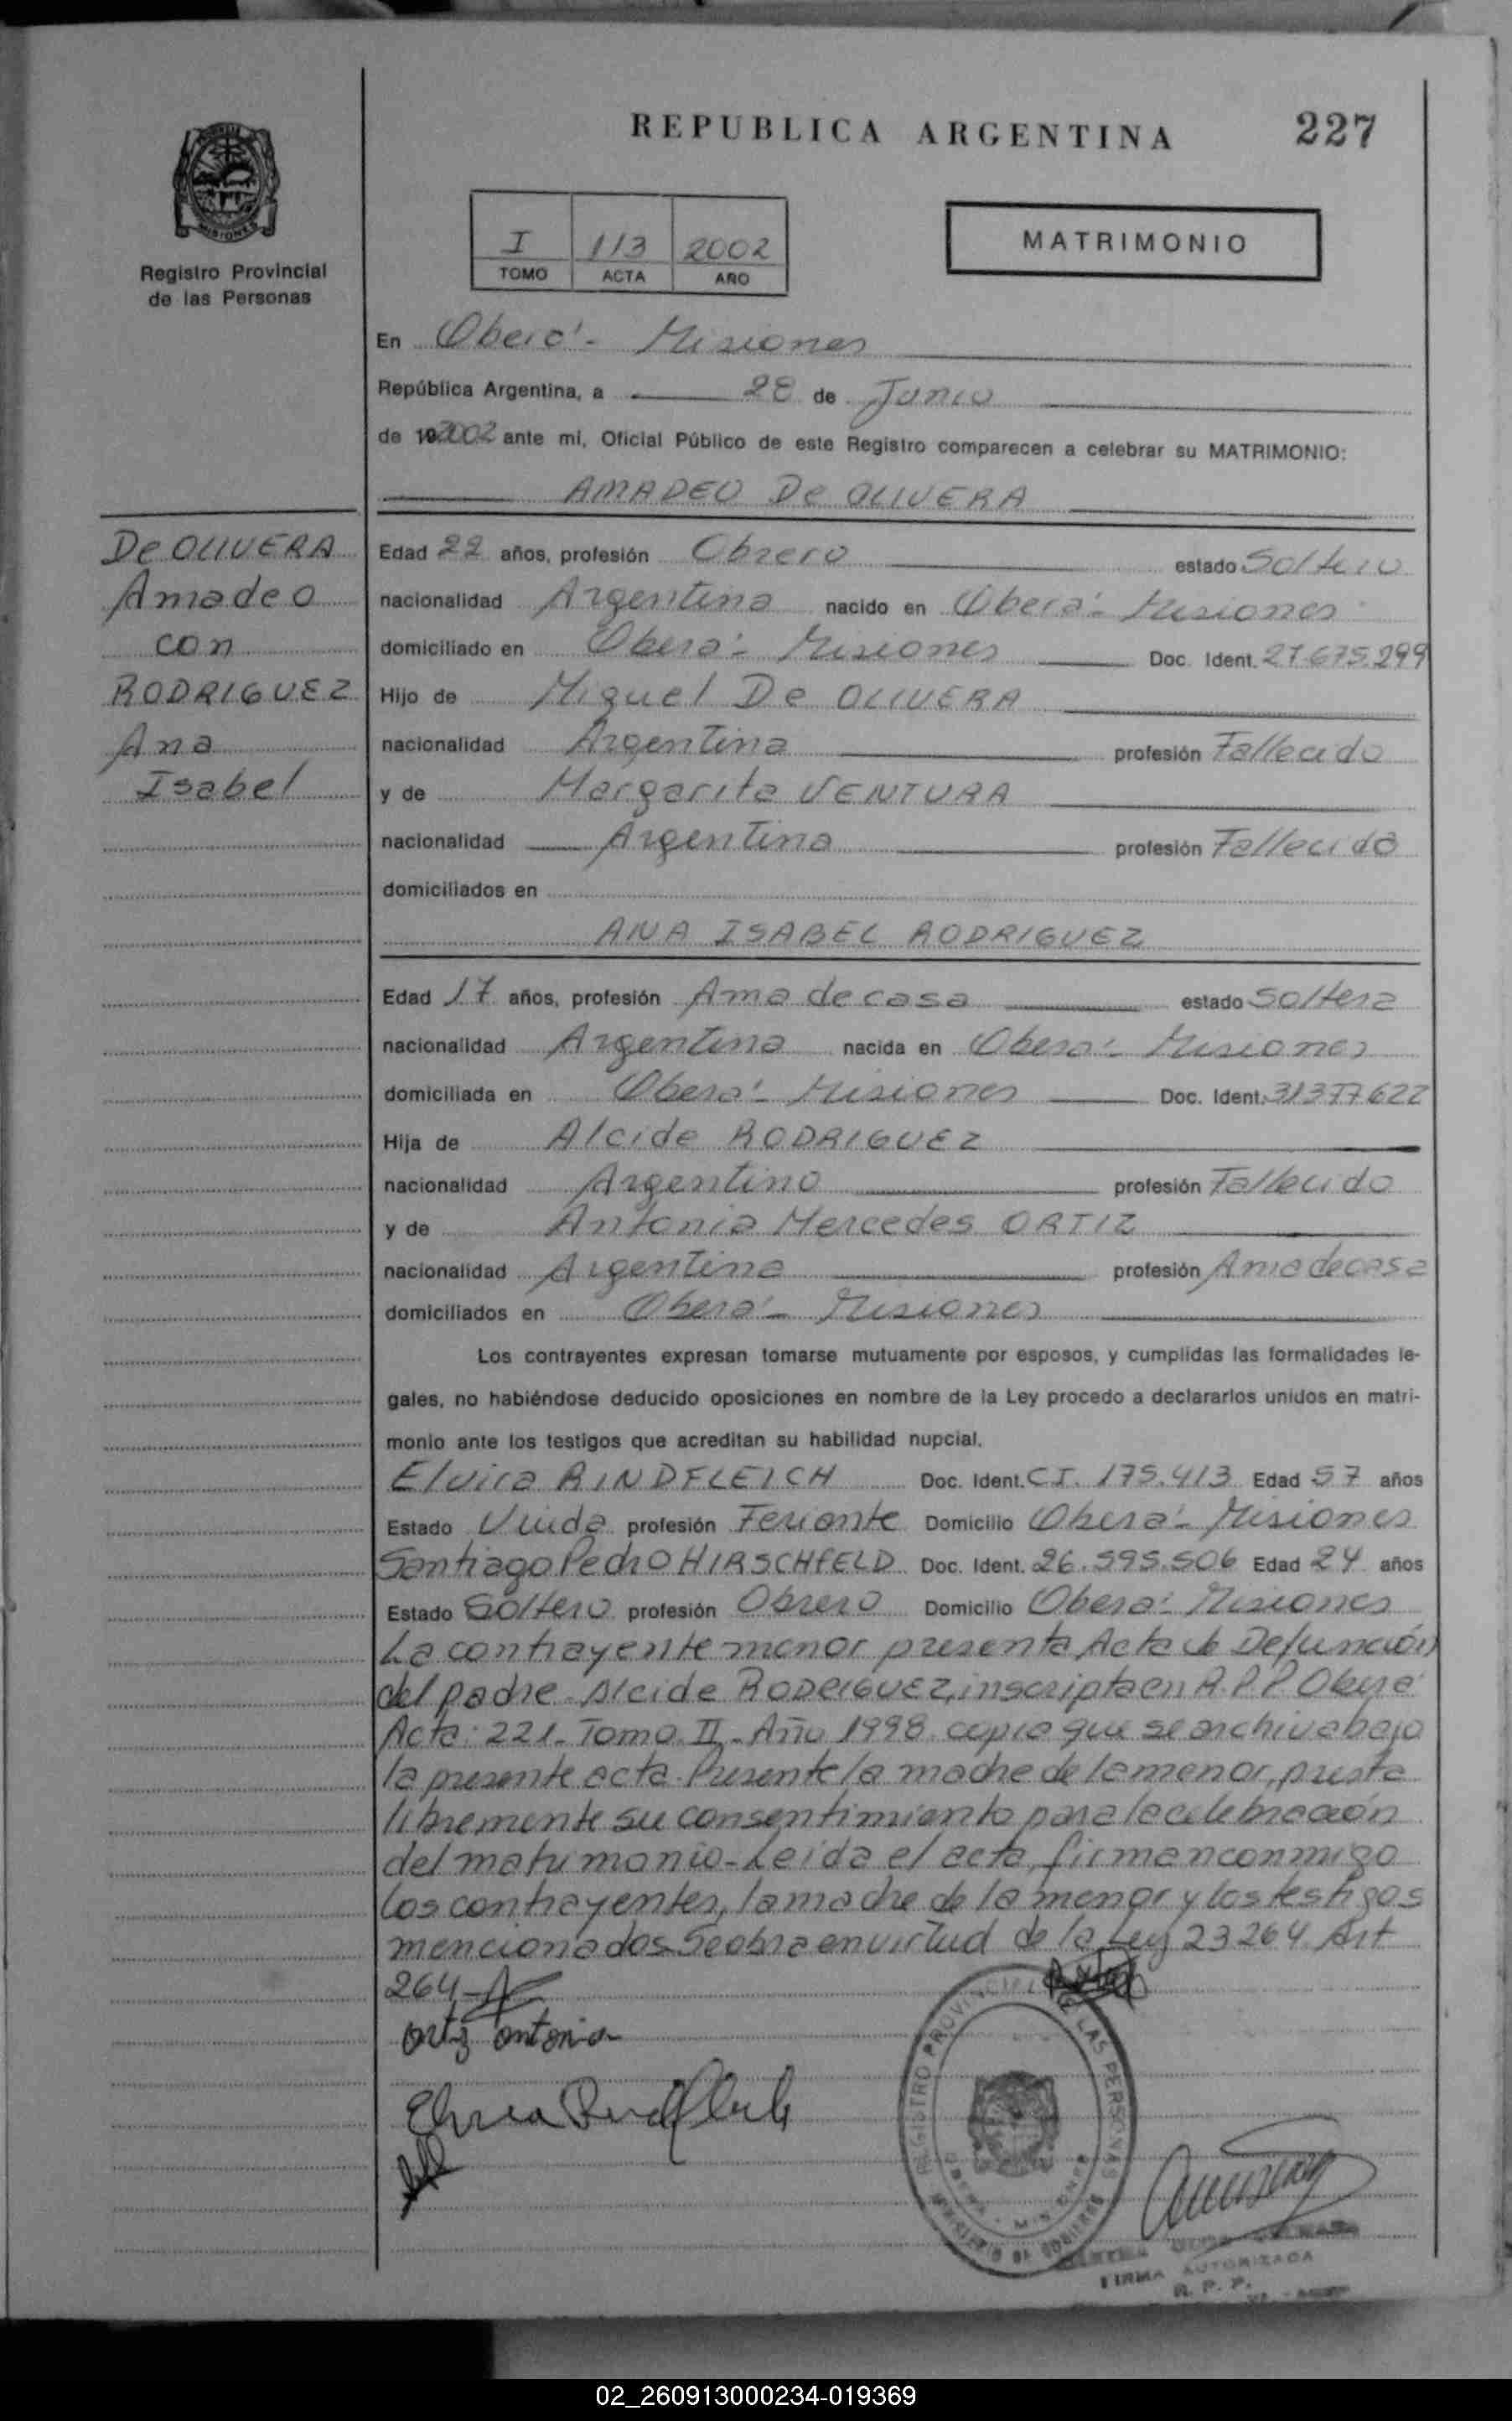 REPUBLICA ARGENTINA
227
MISIONES
Registro Provincial
de las Personas
I 113 2002
TOMO ACTA AÑO
MATRIMONIO
En Oberá - Misiones
República Argentina, a 28 de Junio
de 19 2002 ante mí, Oficial Público de este Registro comparecen a celebrar su MATRIMONIO:
AMADEO De OLIVERA
De OLIVERA
Amadeo
con
RODRIGUEZ
Ana
Isabel
Edad 22 años, profesión Obrero estado Soltero
nacionalidad Argentina nacido en Oberá - Misiones
domiciliado en Oberá - Misiones Doc. Ident. 27.675.299
Hijo de Miguel De OLIVERA
nacionalidad Argentina profesión Fallecido
y de Margarita VENTURA
nacionalidad Argentina profesión Fallecida
domiciliados en
ANA ISABEL RODRIGUEZ
Edad 17 años, profesión Ama de casa estado Soltera
nacionalidad Argentina nacida en Oberá - Misiones
domiciliada en Oberá - Misiones Doc. Ident. 31377622
Hija de Alcide RODRIGUEZ
nacionalidad Argentino profesión Fallecido
y de Antonia Mercedes ORTIZ
nacionalidad Argentina profesión Ama de casa
domiciliados en Oberá - Misiones
Los contrayentes expresan tomarse mutuamente por esposos, y cumplidas las formalidades le-
gales, no habiéndose deducido oposiciones en nombre de la Ley procedo a declararlos unidos en matri-
monio ante los testigos que acreditan su habilidad nupcial.
Elvira RINDFLEICH Doc. Ident. CI. 175.413 Edad 57 años
Estado Viuda profesión Feriante Domicilio Oberá - Misiones
Santiago Pedro HIRSCHFELD Doc. Ident. 26.595.506 Edad 24 años
Estado Soltero profesión Obrero Domicilio Oberá - Misiones
La contrayente menor presenta Acta de Defunción
del padre Alcide RODRIGUEZ, inscripta en R.P.P Oberá
Acta: 221. Tomo II - Año 1998. copia que se archiva bajo
la presente acta. Presente la madre de la menor, presta
libremente su consentimiento para la celebración
del matrimonio - Leída el acta, firman conmigo
los contrayentes, la madre de la menor y los testigos
mencionados Se obra en virtud de la Ley 23264 Art
264 -
Ortiz antonia
REGISTRO PROVINCIAL DE LAS PERSONAS
OBERA - MISIONES
MINISTERIO DE GOBIERNO
FIRMA AUTORIZADA
R. P. P.
02_260913000234-019369